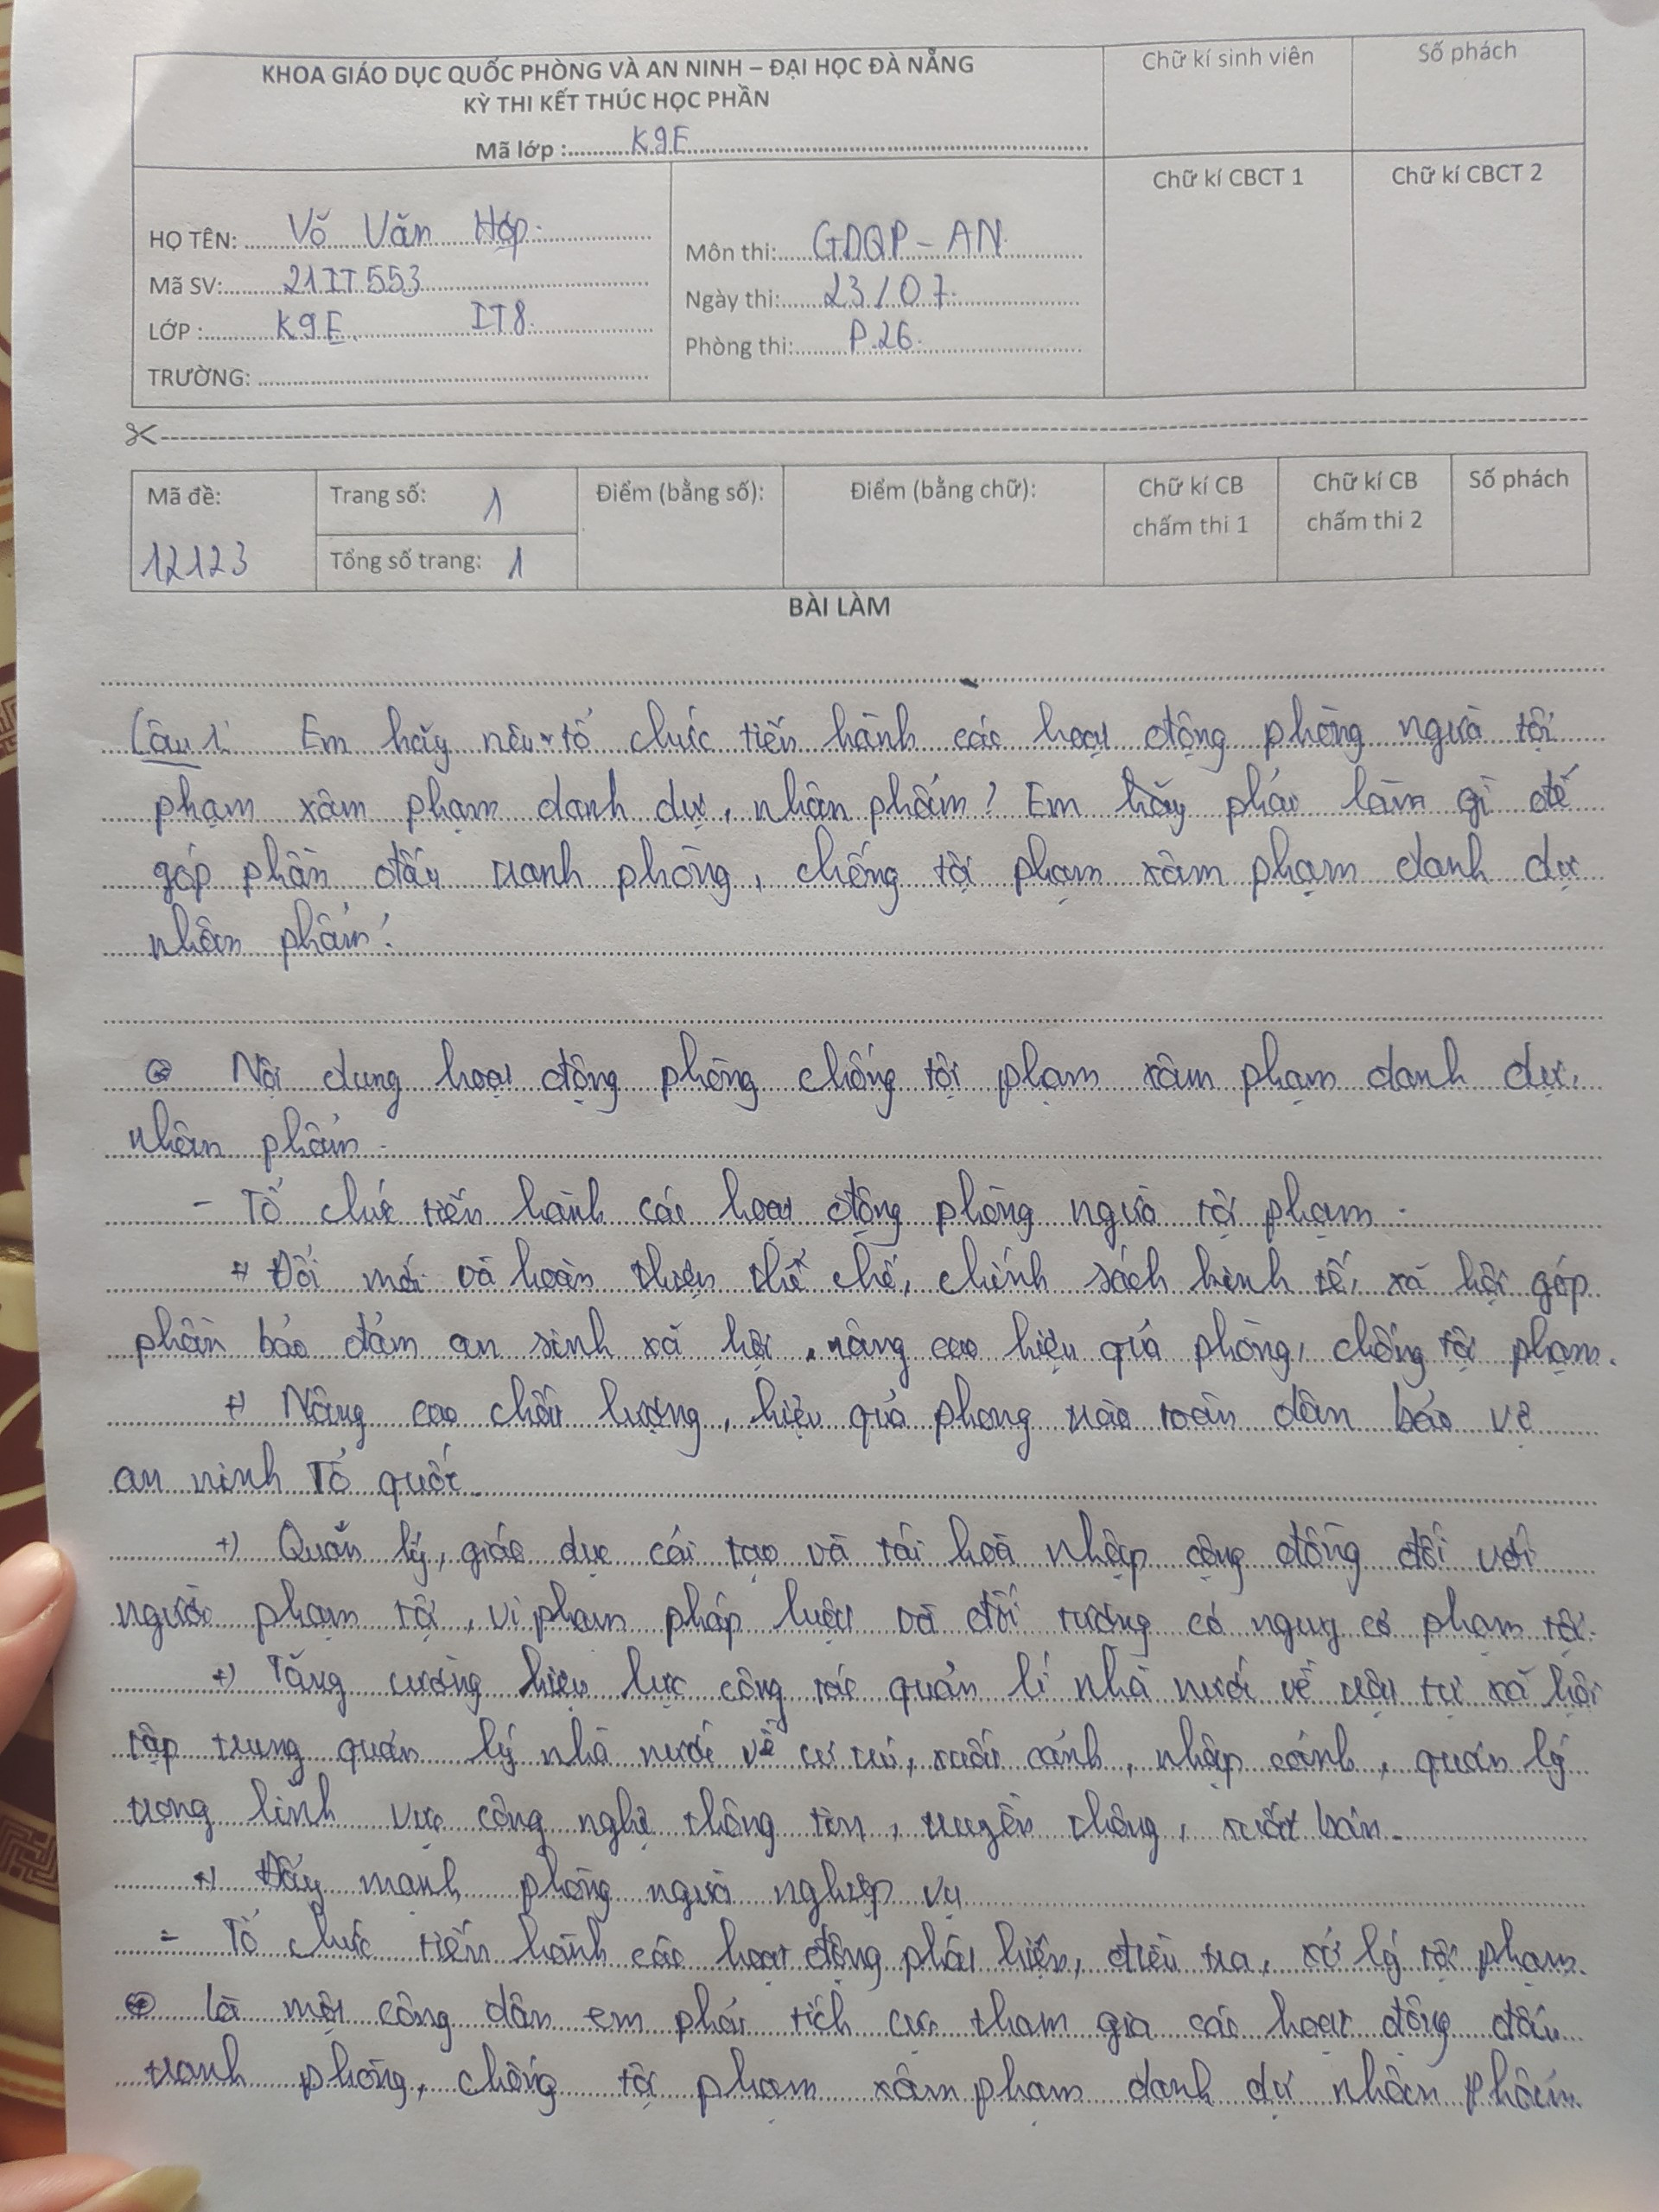 KHOA GIÁO DỤC QUỐC PHÒNG VÀ AN NINH – ĐẠI HỌC ĐÀ NẴNG
KỲ THI KẾT THÚC HỌC PHẦN
Mã lớp : K9E
Chữ kí sinh viên
Số phách
HỌ TÊN: Võ Văn Hợp.
Mã SV: 21IT553
LỚP : K9E. IT8.
TRƯỜNG:
Môn thi: GDQP – AN.
Ngày thi: 23/07.
Phòng thi: P.26.
Chữ kí CBCT 1
Chữ kí CBCT 2
Mã đề: 12123
Trang số: 1
Tổng số trang: 1
Điểm (bằng số):
Điểm (bằng chữ):
Chữ kí CB chấm thi 1
Chữ kí CB chấm thi 2
Số phách
BÀI LÀM
Câu 1: Em hãy nêu tổ chức tiến hành các hoạt động phòng ngừa tội
phạm xâm phạm danh dự, nhân phẩm? Em hãy phải làm gì để
góp phần đấu tranh phòng, chống tội phạm xâm phạm danh dự
nhân phẩm?
Nội dung hoạt động phòng chống tội phạm xâm phạm danh dự,
nhân phẩm.
- Tổ chức tiến hành các hoạt động phòng ngừa tội phạm.
+) Đổi mới và hoàn thiện thể chế, chính sách kinh tế, xã hội góp
phần bảo đảm an sinh xã hội, nâng cao hiệu quả phòng, chống tội phạm.
+) Nâng cao chất lượng, hiệu quả phong trào toàn dân bảo vệ
an ninh Tổ quốc.
+) Quản lý, giáo dục cải tạo và tái hoà nhập cộng đồng đối với
người phạm tội, vi phạm pháp luật và đối tượng có nguy cơ phạm tội.
+) Tăng cường hiệu lực công tác quản lí nhà nước về trật tự xã hội
tập trung quản lý nhà nước về cư trú, xuất cảnh, nhập cảnh, quản lý
trong lĩnh vực công nghệ thông tin, truyền thông, xuất bản.
+) Đẩy mạnh phòng ngừa nghiệp vụ
- Tổ chức tiến hành các hoạt động phát hiện, điều tra, xử lý tội phạm.
Là một công dân em phải tích cực tham gia các hoạt động đấu
tranh phòng, chống tội phạm xâm phạm danh dự nhân phẩm.